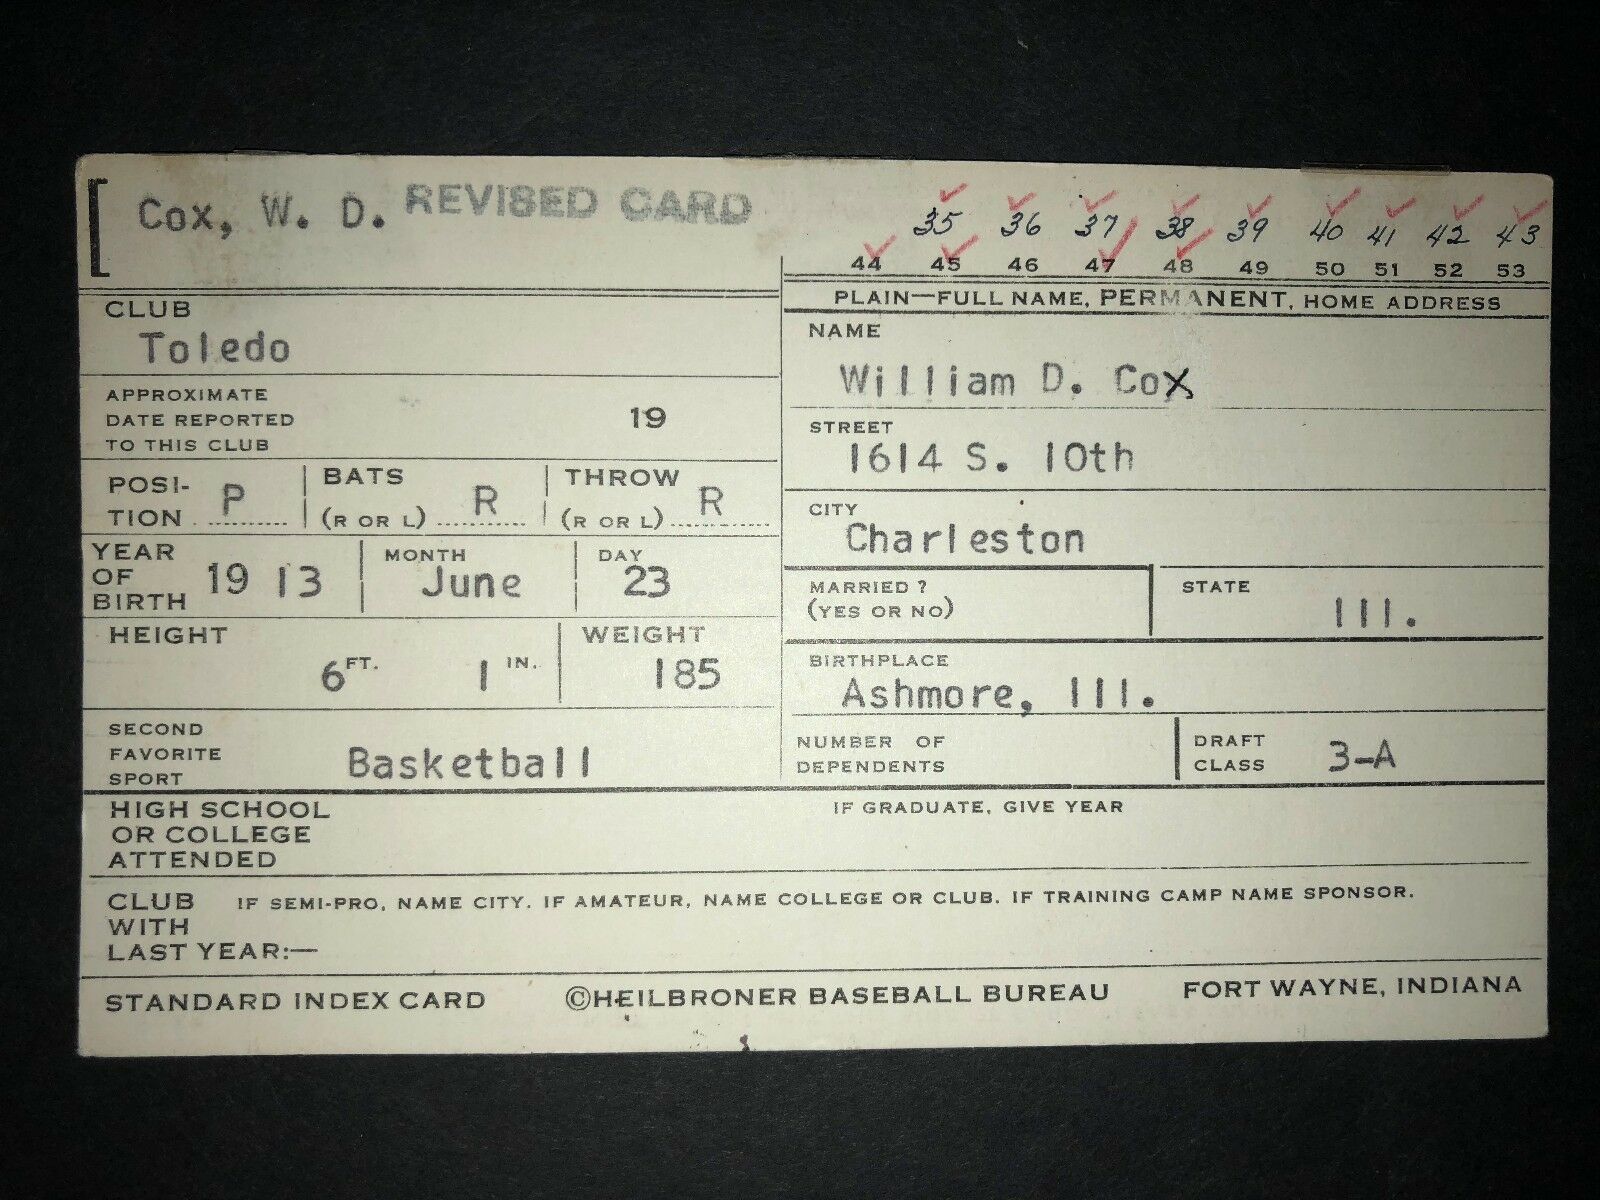 Cox, W. D. REVISED CARD
35 36 37 38 39 40 41 42 43
44 45 46 47 48 49 50 51 52 53
PLAIN—FULL NAME, PERMANENT, HOME ADDRESS
CLUB
Toledo
NAME
William D. Cox
APPROXIMATE
DATE REPORTED 19
TO THIS CLUB
STREET
1614 S. 10th
POSI-
TION P
BATS
(R OR L) R
THROW
(R OR L) R
CITY
Charleston
YEAR
OF
BIRTH 19 13
MONTH
June
DAY
23
MARRIED ?
(YES OR NO)
STATE
Ill.
HEIGHT
6 FT. 1 IN.
WEIGHT
185
BIRTHPLACE
Ashmore, Ill.
SECOND
FAVORITE
SPORT Basketball
NUMBER OF
DEPENDENTS
DRAFT
CLASS 3-A
HIGH SCHOOL
OR COLLEGE
ATTENDED
IF GRADUATE, GIVE YEAR
CLUB IF SEMI-PRO, NAME CITY. IF AMATEUR, NAME COLLEGE OR CLUB. IF TRAINING CAMP NAME SPONSOR.
WITH
LAST YEAR:—
STANDARD INDEX CARD ©HEILBRONER BASEBALL BUREAU FORT WAYNE, INDIANA